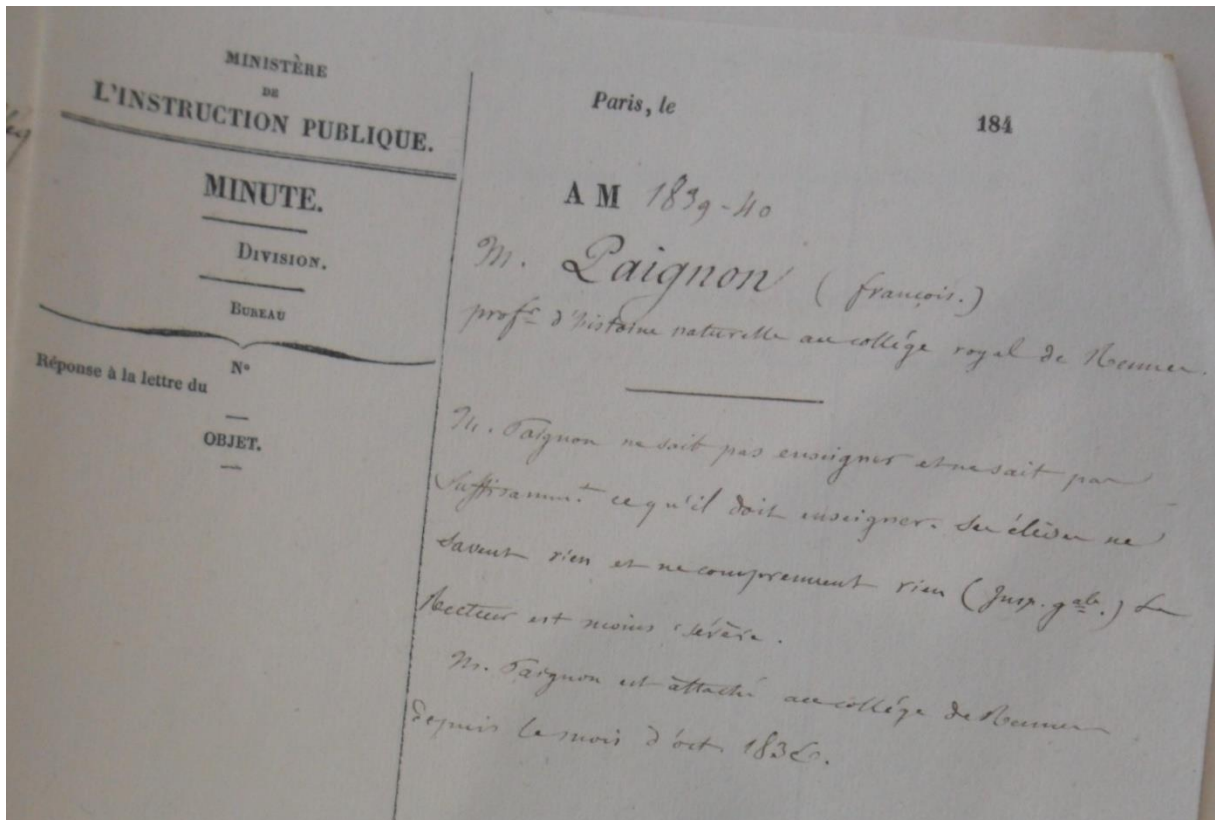 MINISTÈRE
DE
L'INSTRUCTION PUBLIQUE.
MINUTE.
DIVISION.
BUREAU
N°
Réponse à la lettre du
OBJET.
Paris, le 184
A M 1839-40
M. Paignon (françois.)
profr. d'histoire naturelle au collége royal de Rennes.
M. Paignon ne sait pas enseigner et ne sait pas
suffisammt. ce qu'il doit enseigner. Ses élèves ne
savent rien et ne comprennent rien (Insp. gale.) Le
Recteur est moins sévère.
M. Paignon est attaché au collége de Rennes
depuis le mois d'oct.